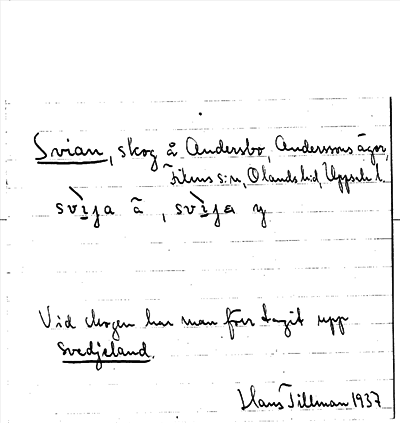 Svian, skog å Andersbo, Anderssons ägor,
Films s:n, Olands hd, Uppsala l.
svi̱ja ã, svi̱ja y
Vid skogen har man förr tagit upp
svedjeland.
Hans Tillman 1937